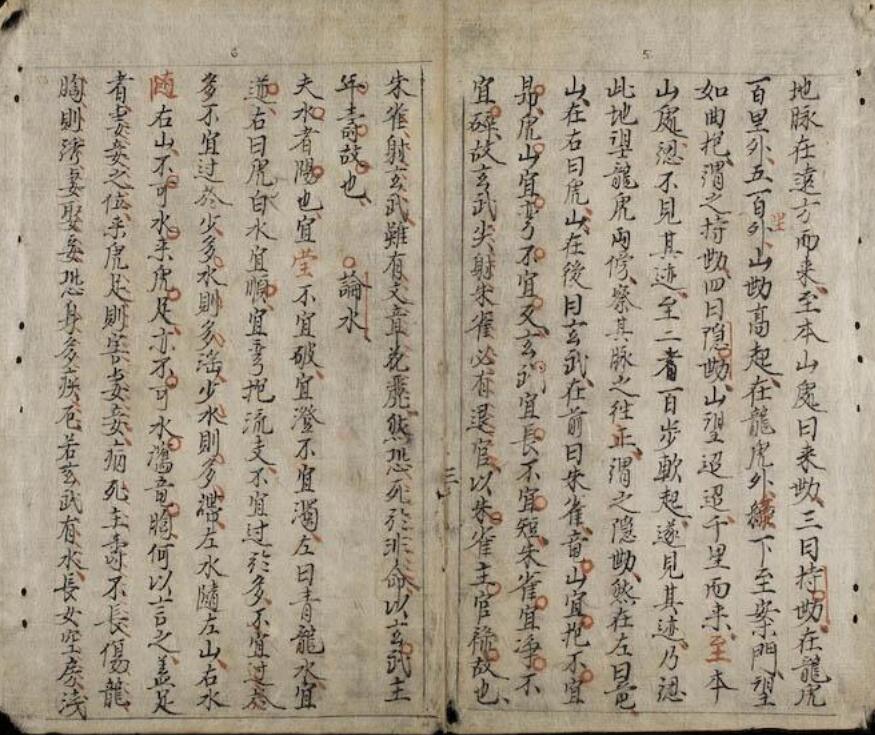 5
地脉在遠方而来至本山處曰来势三曰持势在龍虎
百里外五百外山势高起在龍虎外繞下至案門望
如曲抱謂之持势四曰隐势山望迢迢千里而来至本
山處忽不見其迹至二者一百步軟起遂見其迹乃認
此地望龍虎两傍察其脉之徃正謂之隐势然在左曰竜
山在右曰虎山在後曰玄武在前曰朱雀竜山宜抱不宜
昂虎山宜弯不宜叉玄武宜長不宜短朱雀宜淨不
宜碎故玄武尖射朱雀必有退官以朱雀主官禄故也
6
朱雀射玄武雖有文章花麗然恐死於非命以玄武主
年壽故也 論水
夫水者陽也宜瑩不宜破宜澄不宜濁左曰青龍水宜
逆右曰虎白水宜順宜弯抱流支不宜过於多不宜过於
多不宜过於少多水則多滛少水則多滯左水隨左山右水
随右山不可水来虎足亦不可水鴻竜胸何以言之盖足
者妻妾之位来虎足則害妻妾病死主壽不長傷龍
胸則淫妻娶妾恐身多疾厄若玄武有水長女空房浅